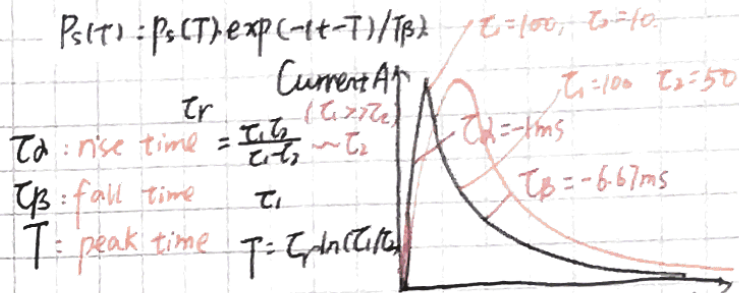 Ps(t) : Ps(T) · exp(-(t-T)/τβ)
τ1=100, τ2=10.
Current A
τ1=100 τ2=50
τr (τ1>>τ2)
τα : rise time = τ1τ2/τ1-τ2 ~ τ2
τα=-1ms
τβ : fall time τ1
τβ=-6.67ms
T : peak time T=τr·ln(τ1/τ2)